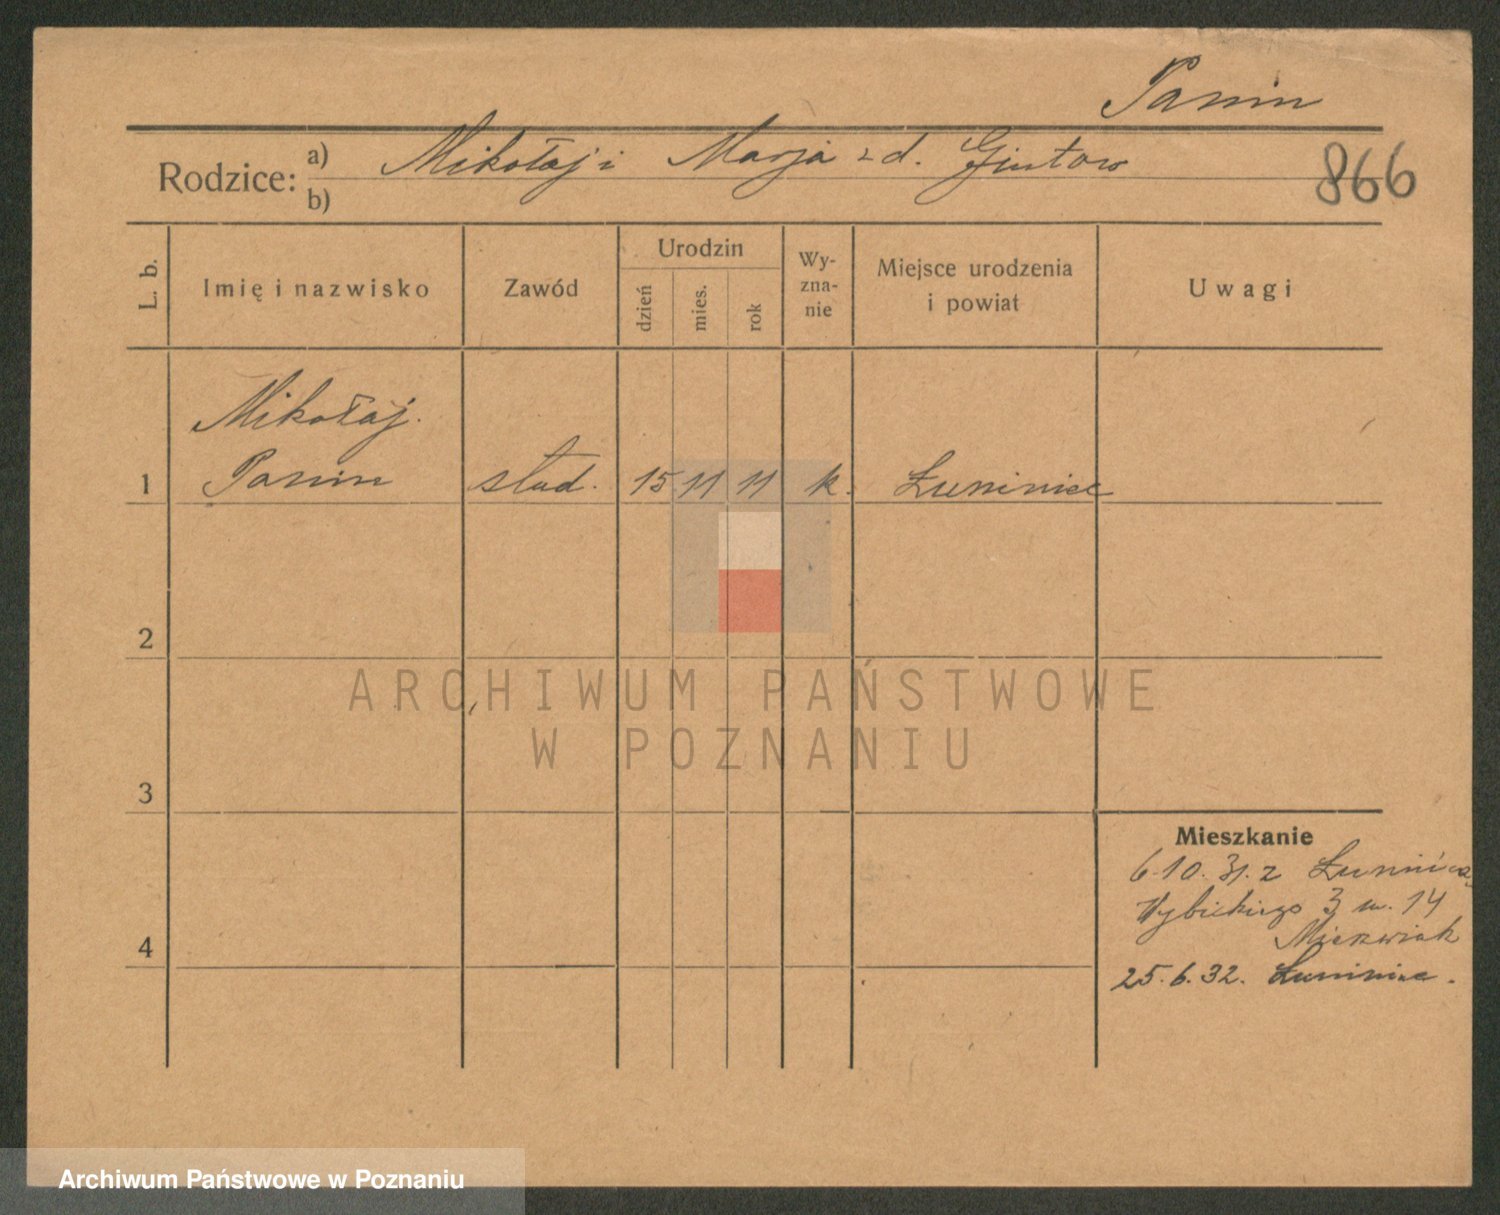 Panin
Rodzice: a) Mikołaj i Marja z d. Gintow
b)
866
L. b.
Imię i nazwisko
Zawód
Urodzin
dzień
mies.
rok
Wy-
zna-
nie
Miejsce urodzenia
i powiat
Uwagi
Mikołaj.
1 Panin stud. 15 11 11 k. Łuniniec
2
3
4
Mieszkanie
6.10.31. z Łunińca
Wybickiego 3 m. 14
25.6.32. Łuniniec.
ARCHIWUM PAŃSTWOWE
W POZNANIU
Archiwum Państwowe w Poznaniu